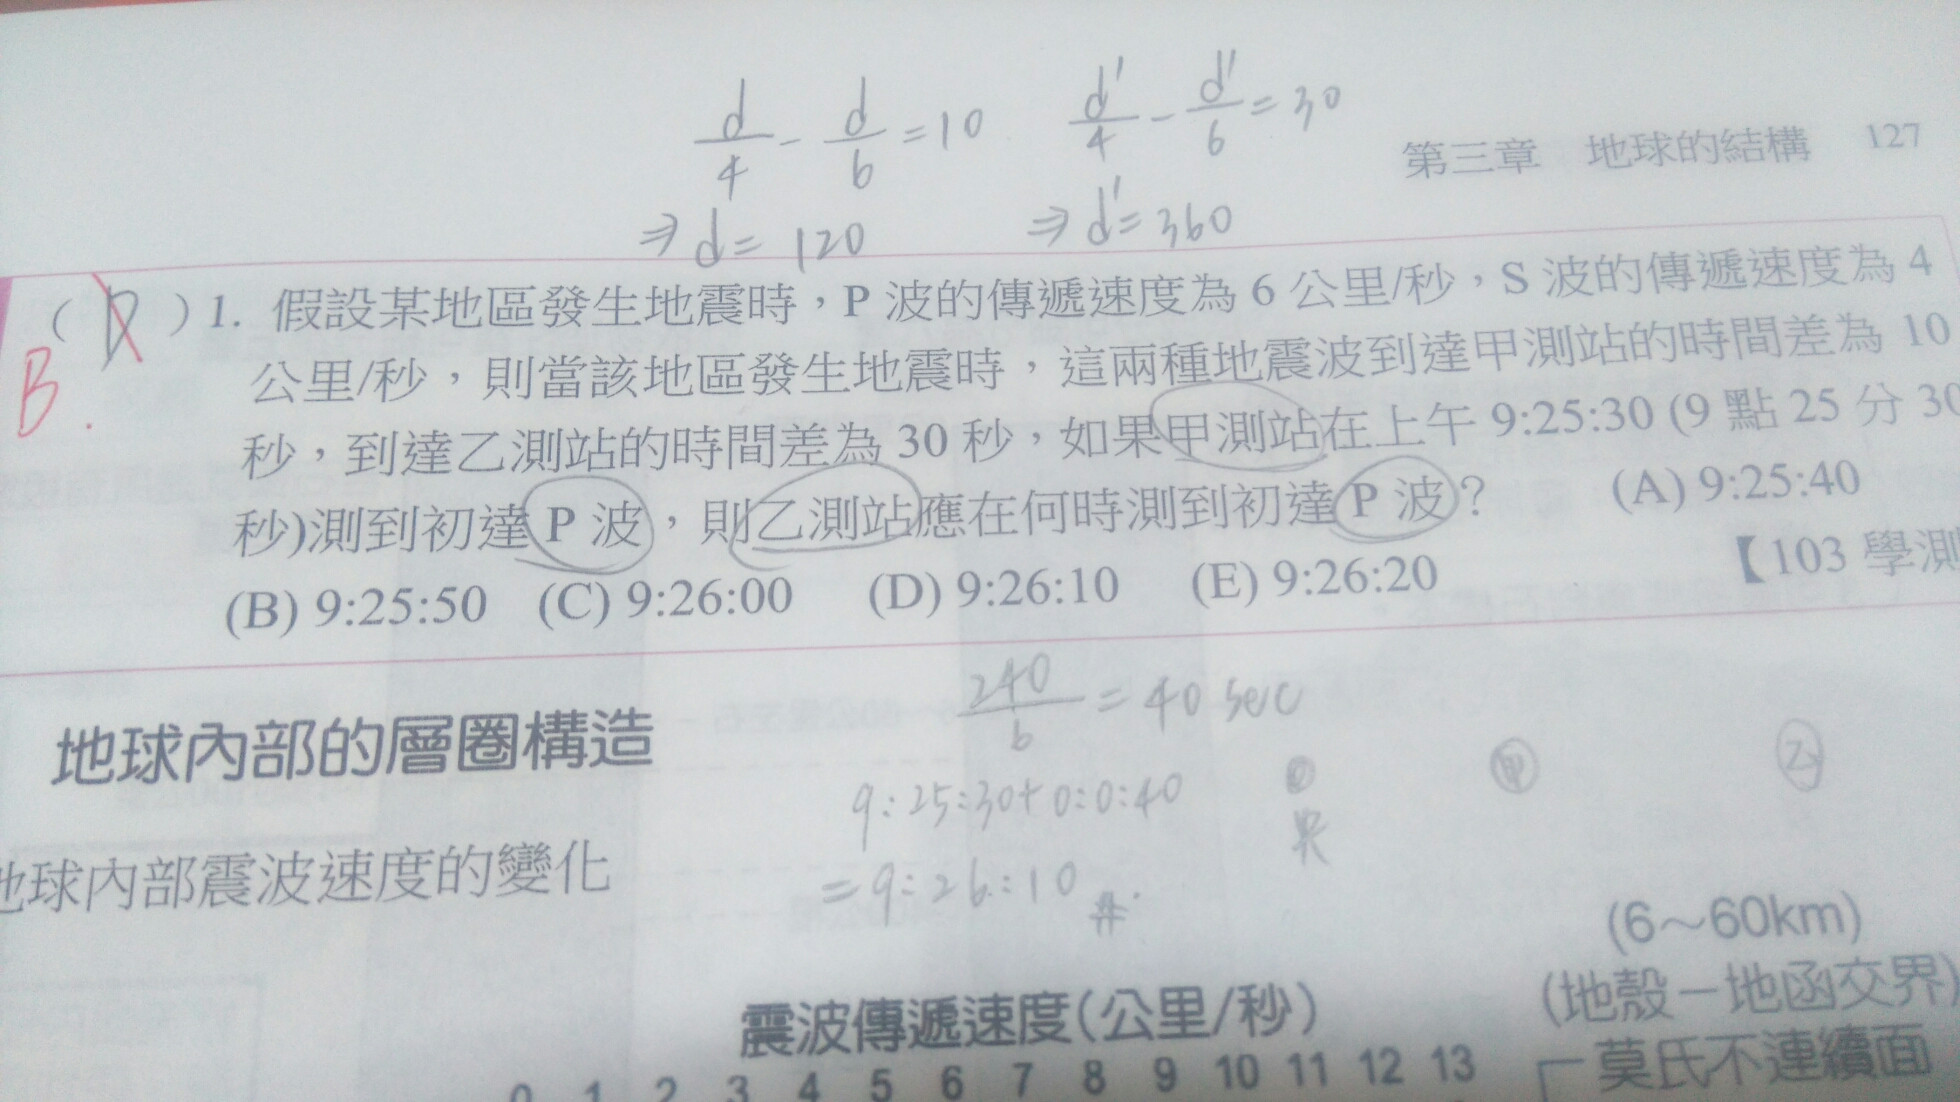 d/4 - d/6 = 10   d'/4 - d'/6 = 30
⇒ d = 120   ⇒ d' = 360
第三章 地球的結構 127
( D ) 1. 假設某地區發生地震時，P 波的傳遞速度為 6 公里/秒，S 波的傳遞速度為 4
B.
公里/秒，則當該地區發生地震時，這兩種地震波到達甲測站的時間差為 10
秒，到達乙測站的時間差為 30 秒，如果甲測站在上午 9:25:30 (9 點 25 分 30
秒)測到初達 P 波，則乙測站應在何時測到初達 P 波？ (A) 9:25:40
(B) 9:25:50 (C) 9:26:00 (D) 9:26:10 (E) 9:26:20 【103 學測
240/6 = 40 sec
地球內部的層圈構造
甲 乙
9:25:30+0:0:40
= 9:26:10 #
地球內部震波速度的變化
(6～60km)
震波傳遞速度(公里/秒)
(地殼－地函交界)
莫氏不連續面
0 1 2 3 4 5 6 7 8 9 10 11 12 13